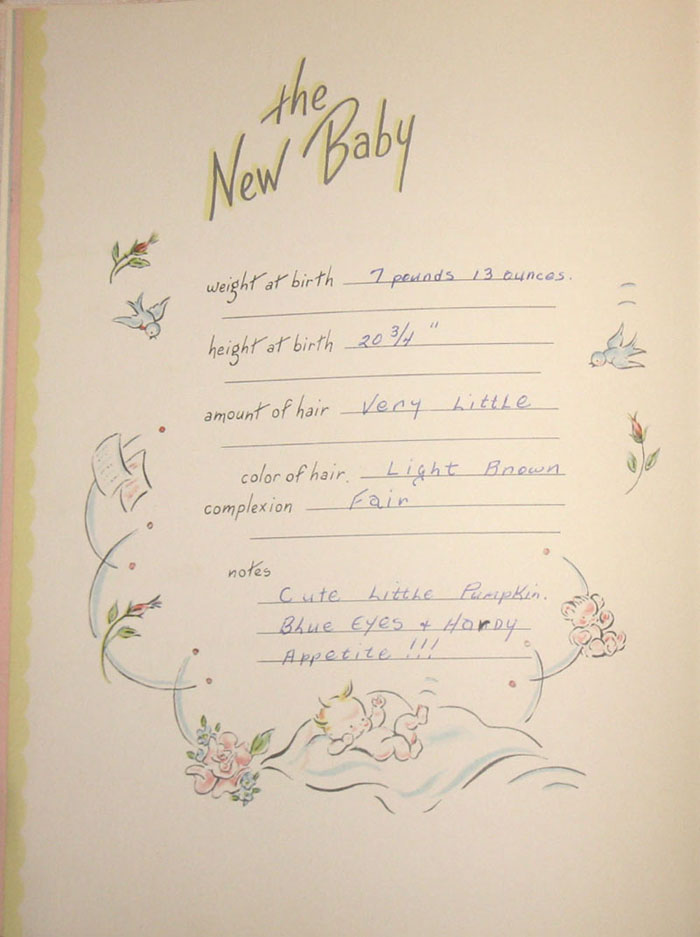 the
New Baby
weight at birth 7 pounds 13 ounces.
height at birth 20 3/4 "
amount of hair Very Little
color of hair. Light Brown
complexion Fair
notes
Cute Little Pumpkin.
Blue Eyes + Hardy
Appetite !!!